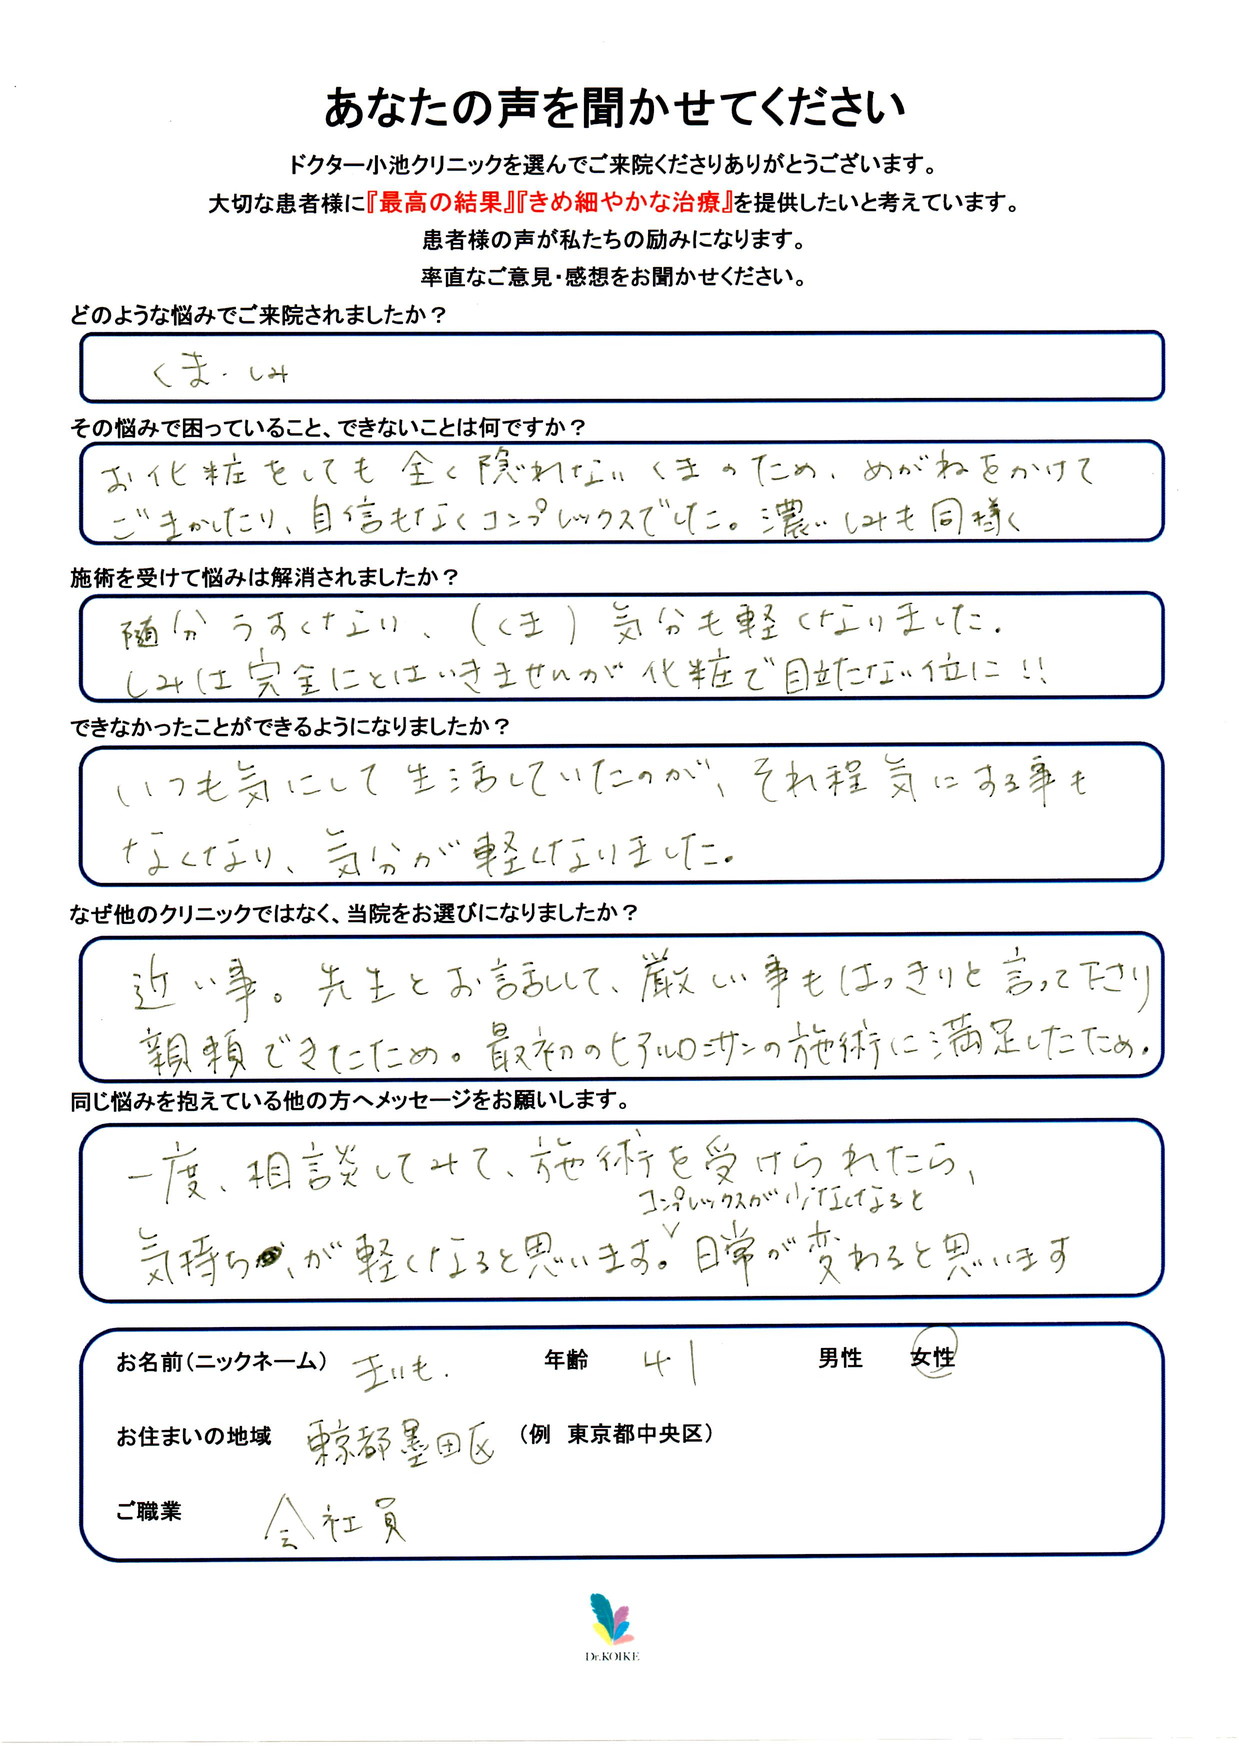 あなたの声を聞かせてください
ドクター小池クリニックを選んでご来院くださりありがとうございます。
大切な患者様に『最高の結果』『きめ細やかな治療』を提供したいと考えています。
患者様の声が私たちの励みになります。
率直なご意見・感想をお聞かせください。
どのような悩みでご来院されましたか？
くま・しみ
その悩みで困っていること、できないことは何ですか？
お化粧をしても全く隠れないくまのため、めがねをかけて
ごまかしたり、自信もなくコンプレックスでした。濃いしみも同様く
施術を受けて悩みは解消されましたか？
随分うすくなり、（くま）気分も軽くなりました。
しみは完全にとはいきませんが化粧で目立たない位に!!
できなかったことができるようになりましたか？
いつも気にして生活していたのが、それ程気にする事も
なくなり、気分が軽くなりました。
なぜ他のクリニックではなく、当院をお選びになりましたか？
近い事。先生とお話しして、厳しい事もはっきりと言って下さり
親頼できたため。最初のヒアルロンサンの施術に満足したため。
同じ悩みを抱えている他の方へメッセージをお願いします。
一度、相談してみて、施術を受けられたら、
コンプレックスが少なくなると
気持ちが軽くなると思います。日常が変わると思います
お名前（ニックネーム） まいも. 年齢 41 男性 女性
お住まいの地域 東京都墨田区 （例 東京都中央区）
ご職業 会社員
Dr.KOIKE